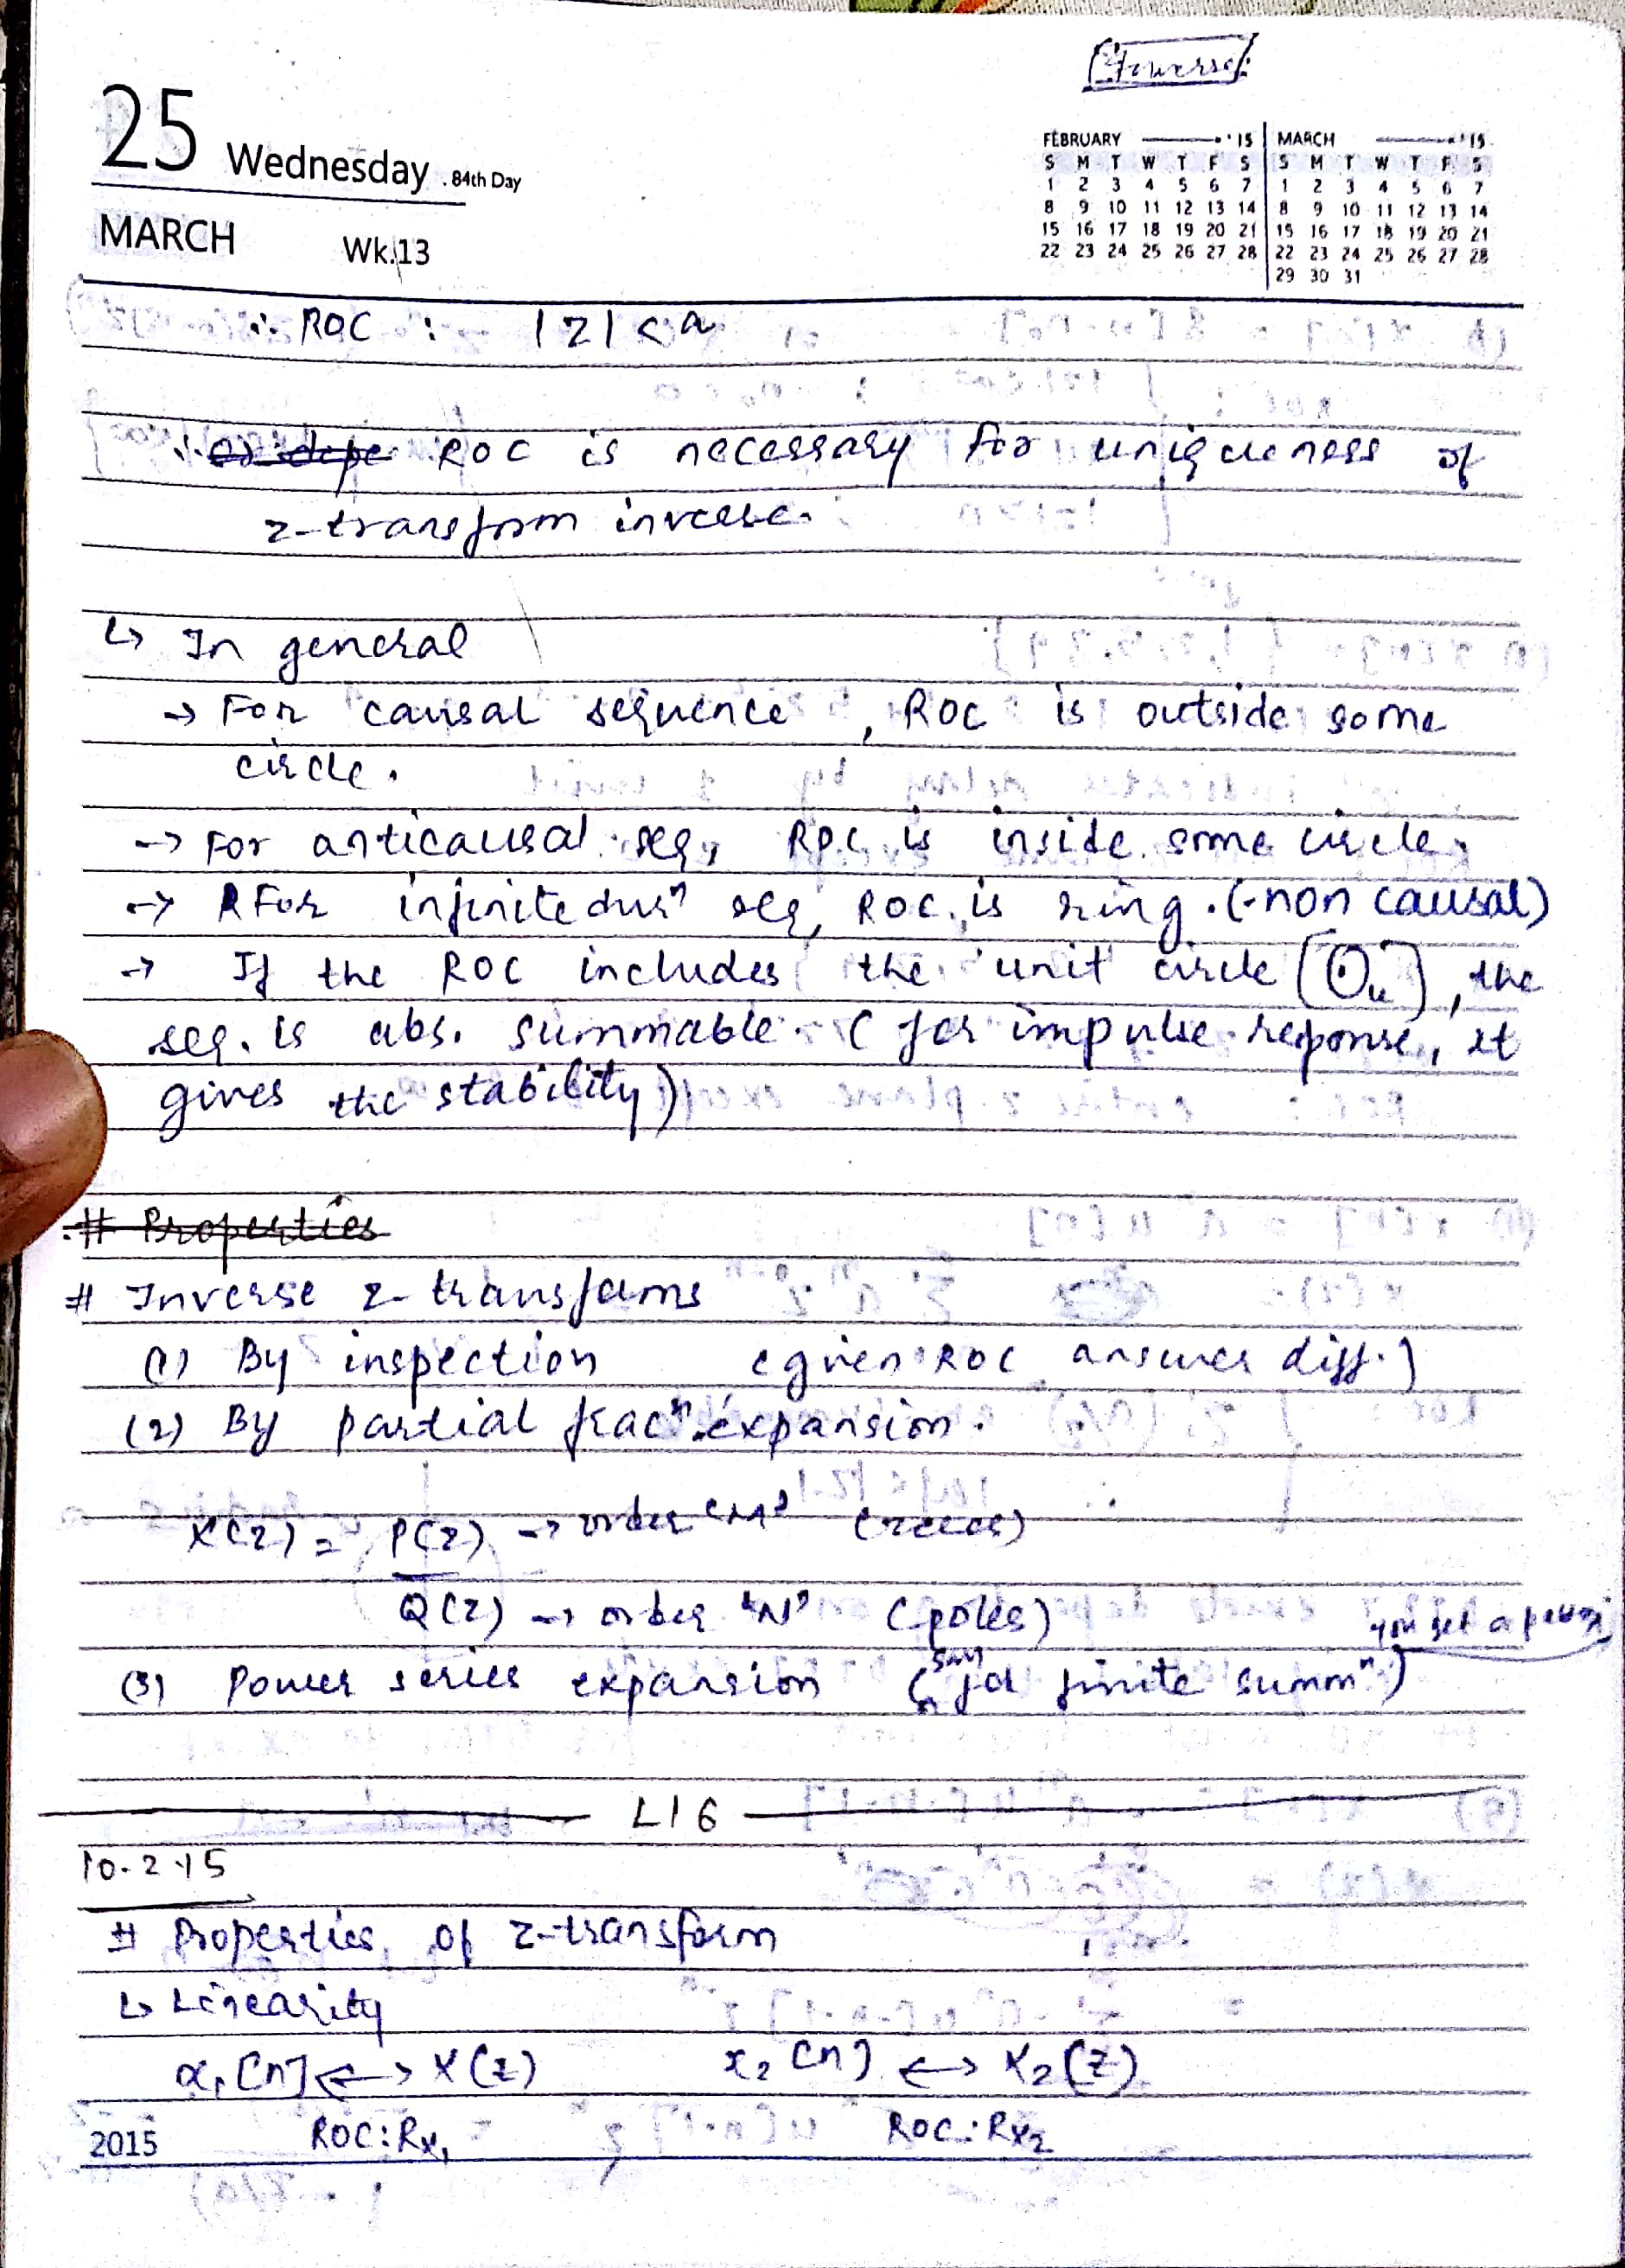 Inverse
25 Wednesday . 84th Day
MARCH Wk.13
FEBRUARY '15 MARCH '15
S M T W T F S S M T W T F S
1 2 3 4 5 6 7 1 2 3 4 5 6 7
8 9 10 11 12 13 14 8 9 10 11 12 13 14
15 16 17 18 19 20 21 15 16 17 18 19 20 21
22 23 24 25 26 27 28 22 23 24 25 26 27 28
29 30 31
∴ ROC : |z| < a
∴ ROC is necessary for uniqueness of
z-transform inverse.
↳ In general
→ For causal sequence , ROC is outside some
circle.
→ For anticausal seq, ROC is inside some circle.
→ For infinite durⁿ seq, ROC is ring. (-non causal)
→ If the ROC includes the unit circle , the
seq. is abs. summable. ( for impulse response, it
gives the stability)
# Properties
# Inverse z-transforms
(1) By inspection (given ROC answer diff.)
(2) By partial fracⁿ expansion.
X(z) = P(z) → order "M" (zeros)
Q(z) → order "N" (poles)
you get a
(3) Power series expansion ( say for finite summⁿ)
L16
10-2-15
# Properties of z-transform
↳ Linearity
x₁[n] ↔ X(z) x₂[n] ↔ X₂(z)
ROC: Rx₁ ROC: Rx₂
2015